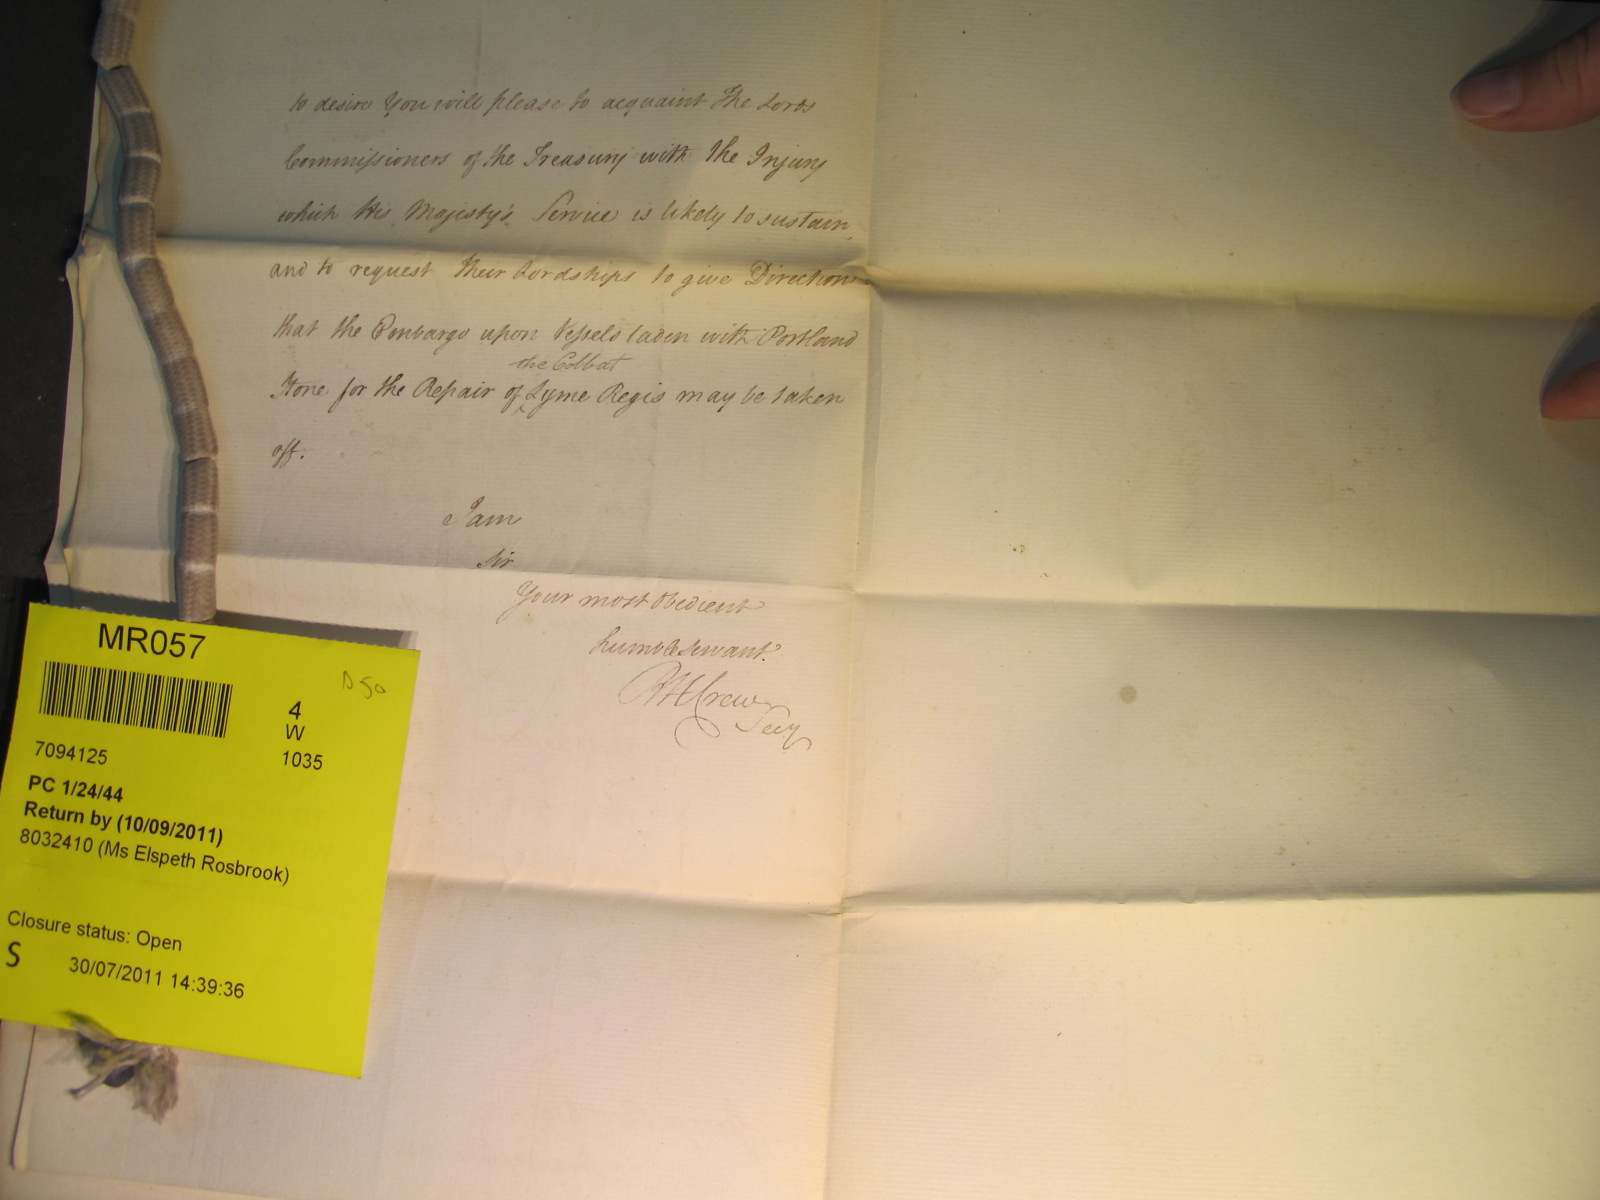 to desire You will please to acquaint The Lords
Commissioners of the Treasury with the Injury
which His Majesty's Service is likely to sustain,
and to request their Lordships to give Directions
that the Embargo upon Vessels laden with Portland
the Cobbat
Stone for the Repair of ^ Lyme Regis may be taken
off.
I am
Sir
Your most Obedient
humble Servant.
RH Crew
Secy
MR057
D 50
4
W
7094125
1035
PC 1/24/44
Return by (10/09/2011)
8032410 (Ms Elspeth Rosbrook)
Closure status: Open
S
30/07/2011 14:39:36